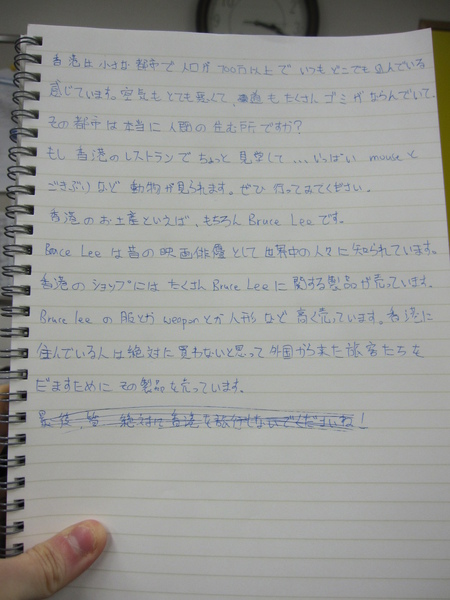 香港は小さな都市で人口が700万以上でいつもどこでも込んでいる
感じています。空気もとても悪くて、道もたくさんゴミがならんでいて、
その都市は本当に人間の住む所ですか？
もし香港のレストランでちょっと見学して...いっぱい mouseと
ごきぶりなど動物が見られます。ぜひ行ってみてください。
香港のお土産といえば、もちろん Bruce Lee です。
Bruce Lee は昔の映画俳優として世界中の人々に知られています。
香港のショップにはたくさん Bruce Lee に関する製品が売っています。
Bruce lee の服とか weapon とか人形など高く売っています。香港に
住んでいる人は絶対に買わないと思って外国から来た旅客たちを
だますためにその製品を売っています。
最後、皆、絶対に香港を旅行しないでくださいね！